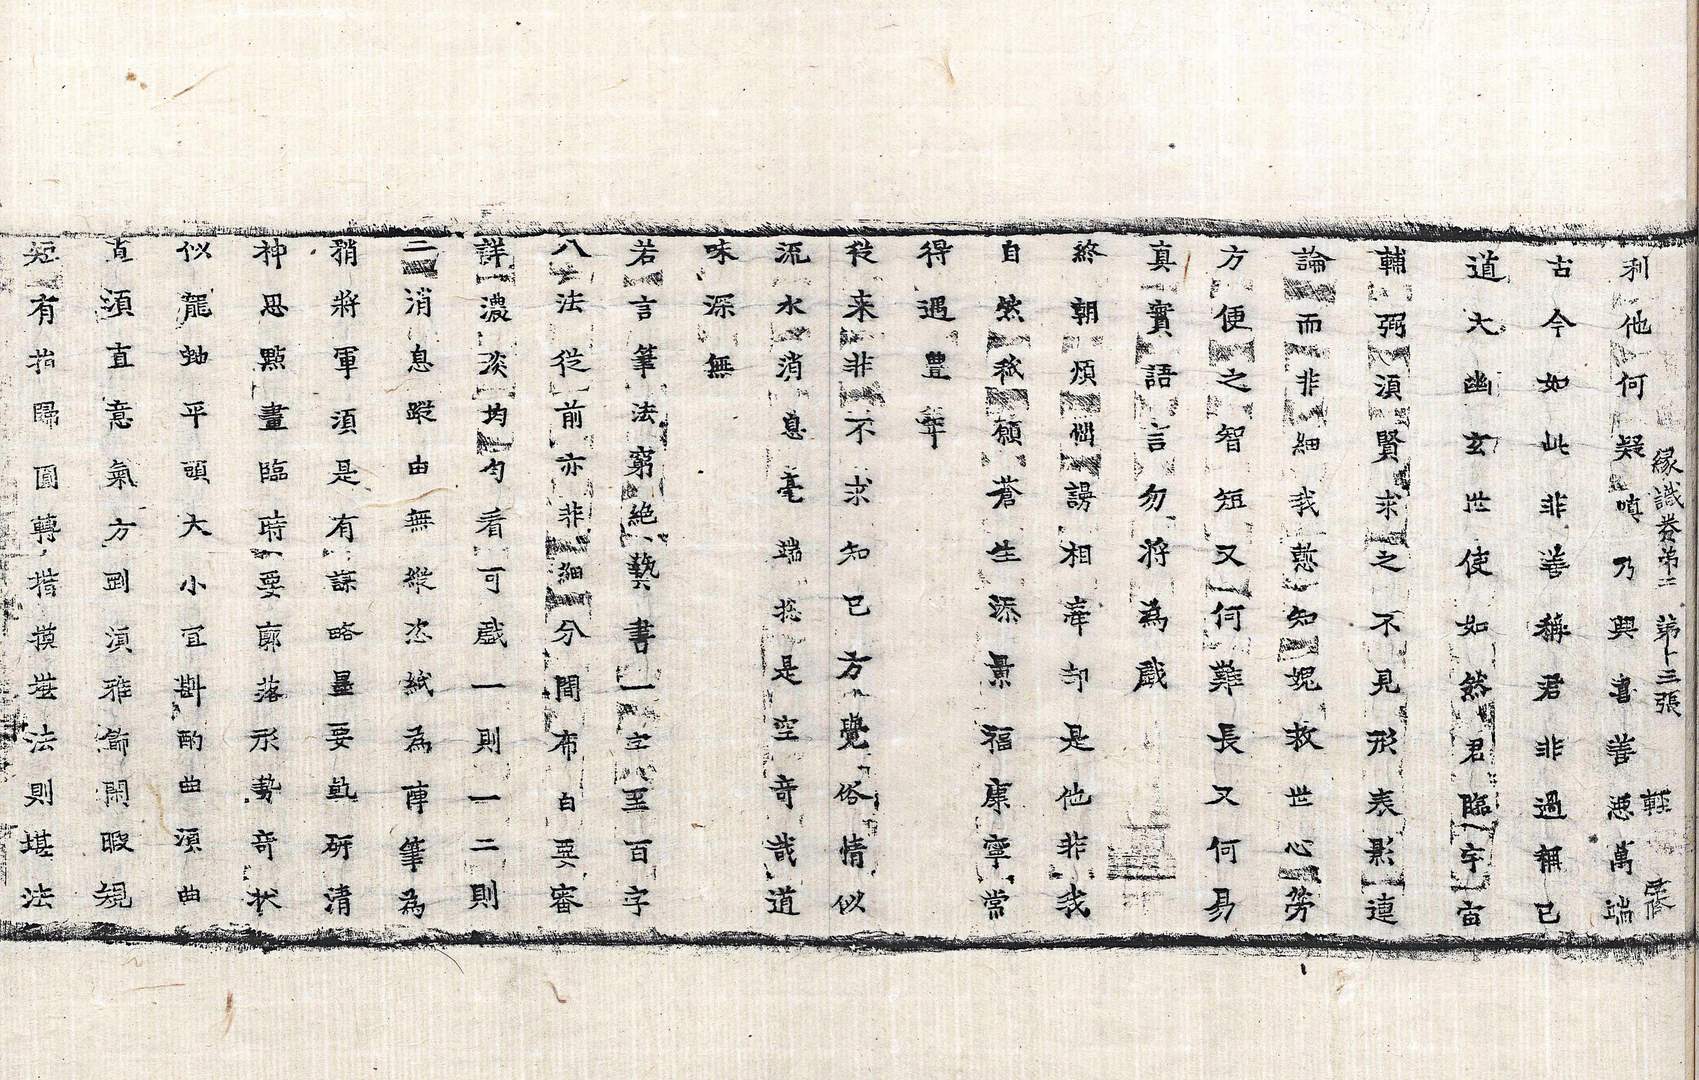 緣識卷第二 第十三張 輕
利他何疑嗔乃興喜善惡萬端
古今如此非善稱君非過稱己
道大幽玄世使如然君臨宇宙
輔弼須賢求之不見形表影連
論而非細我愁知媿救世心勞
方便之智短又何難長又何易
真實語言勿將為戲
終朝煩惱謗相牽却是他非我
自然秖願蒼生添景福康寧常
得遇豐年
從来非不求知已方覺俗情似
流水消息毫端揔是空奇哉道
味深無
若言筆法窮絶藝書一字至百字
八法從前亦非細分間布白要審
詳濃淡均勻看可戲一則一二則
二消息蹤由無縱恣紙為陣筆為
矟將軍須是有謀略墨要乹研清
神思點畫臨時要廓落形勢奇狀
似龍蚴平頭大小宜斟酌曲須曲
直須直意氣方圓須雅飾閑暇規
矩有指歸圓轉措摸堪法則堪法